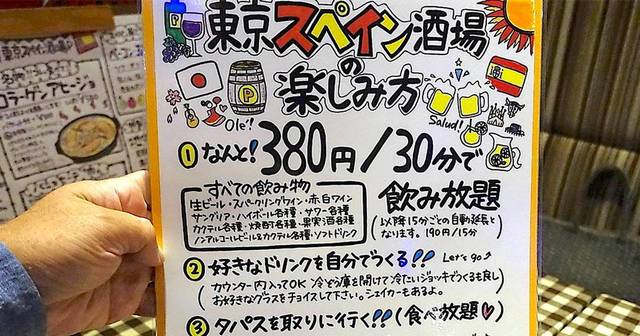 東京スペイン酒場
の
楽しみ方
Olé!
Salud!
P
① なんと! 380円/30分で
飲み放題
すべての飲み物
生ビール・スパークリングワイン・赤白ワイン
サングリア・ハイボール各種・サワー各種
カクテル各種・焼酎各種・果実酒各種
ノンアルコールビール&カクテル各種・ソフトドリンク
(以降15分ごとの自動延長と
なります。190円/15分)
② 好きなドリンクを自分でつくる!! Let's go
(カウンター内入ってOK 冷ぞう庫を開けて冷たいジョッキでつくるも良し
お好きなグラスをチョイスして下さい。シェイカーもあるよ。)
③ タパスを取りに行く!! (食べ放題♡)
コラーゲンアヒージョ